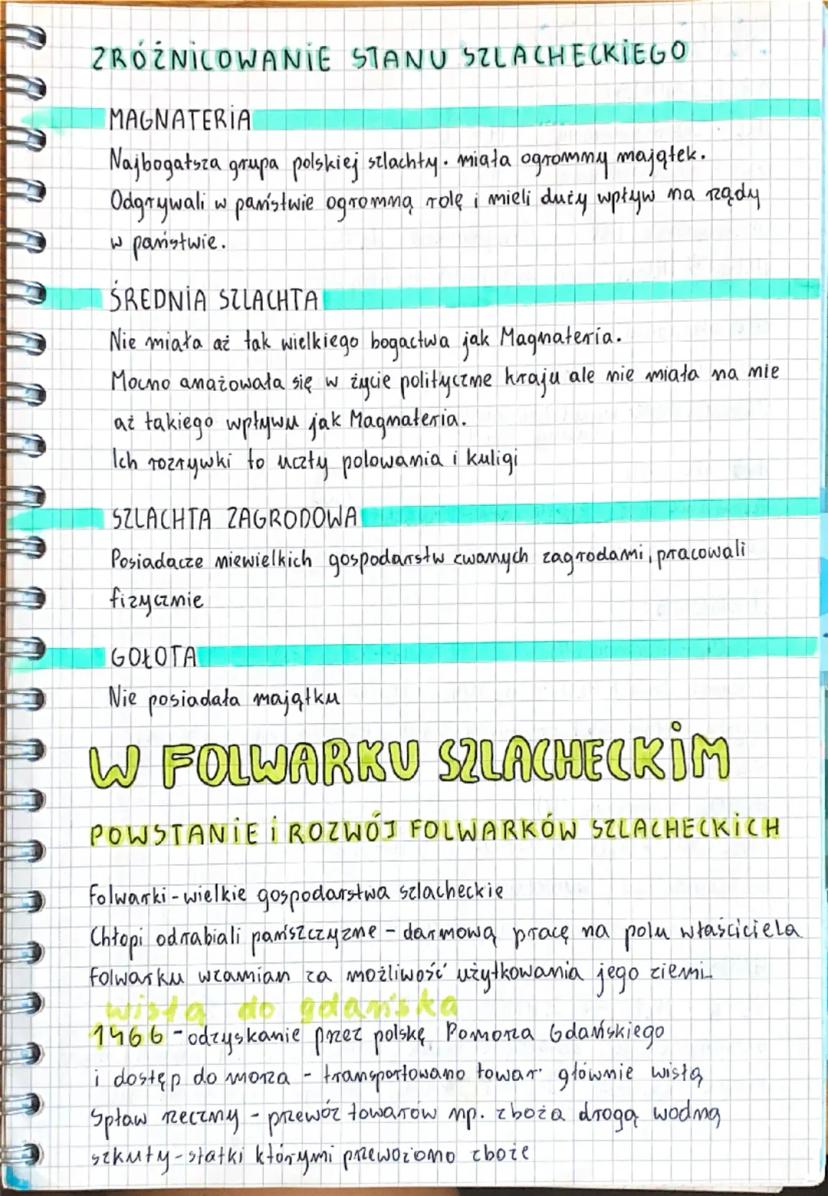 ZRÓŻNICOWANIE STANU SZLACHECKIEGO
MAGNATERIA
Najbogatsza grupa polskiej szlachty. miała ogromny majątek.
Odgrywali w państwie ogromną rolę i mieli duży wpływ na rządy
w państwie.
ŚREDNIA SZLACHTA
Nie miała aż tak wielkiego bogactwa jak Magnateria.
Mocno anażowała się w życie polityczne kraju ale nie miała na nie
aż takiego wpływu jak Magnateria.
Ich rozrywki to uczty polowania i kuligi
SZLACHTA ZAGRODOWA
Posiadacze niewielkich gospodarstw zwanych zagrodami, pracowali
fizycznie
GOŁOTA
Nie posiadała majątku
W FOLWARKU SZLACHECKIM
POWSTANIE I ROZWÓJ FOLWARKÓW SZLACHECKICH
Folwarki - wielkie gospodarstwa szlacheckie
Chłopi odrabiali pańszczyznę - darmową pracę na polu właściciela
folwarku wzamian za możliwość użytkowania jego ziemi
wisłą do gdańska
1466 - odzyskanie przez polskę Pomorza Gdańskiego
i dostęp do morza - transportowano towar głównie wisłą
Spław rzeczny - przewóz towarów np. zboża drogą wodną
szkuty - statki którymi przewożono zboże